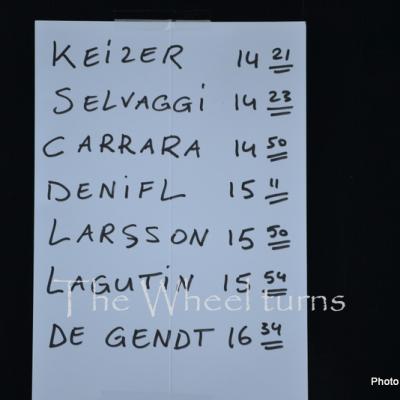 KEIZER 14 21
SELVAGGI 14 23
CARRARA 14 50
DENIFL 15 11
LARSSON 15 50
LAGUTIN 15 54
The Wheel turns
DE GENDT 16 34
Photo